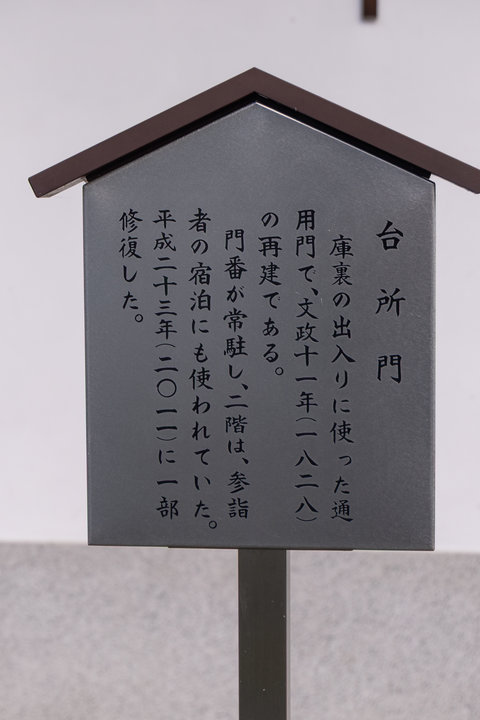 台所門
庫裏の出入りに使った通
用門で、文政十一年(一八二八)
の再建である。
門番が常駐し、二階は、参詣
者の宿泊にも使われていた。
平成二十三年(二〇一一)に一部
修復した。